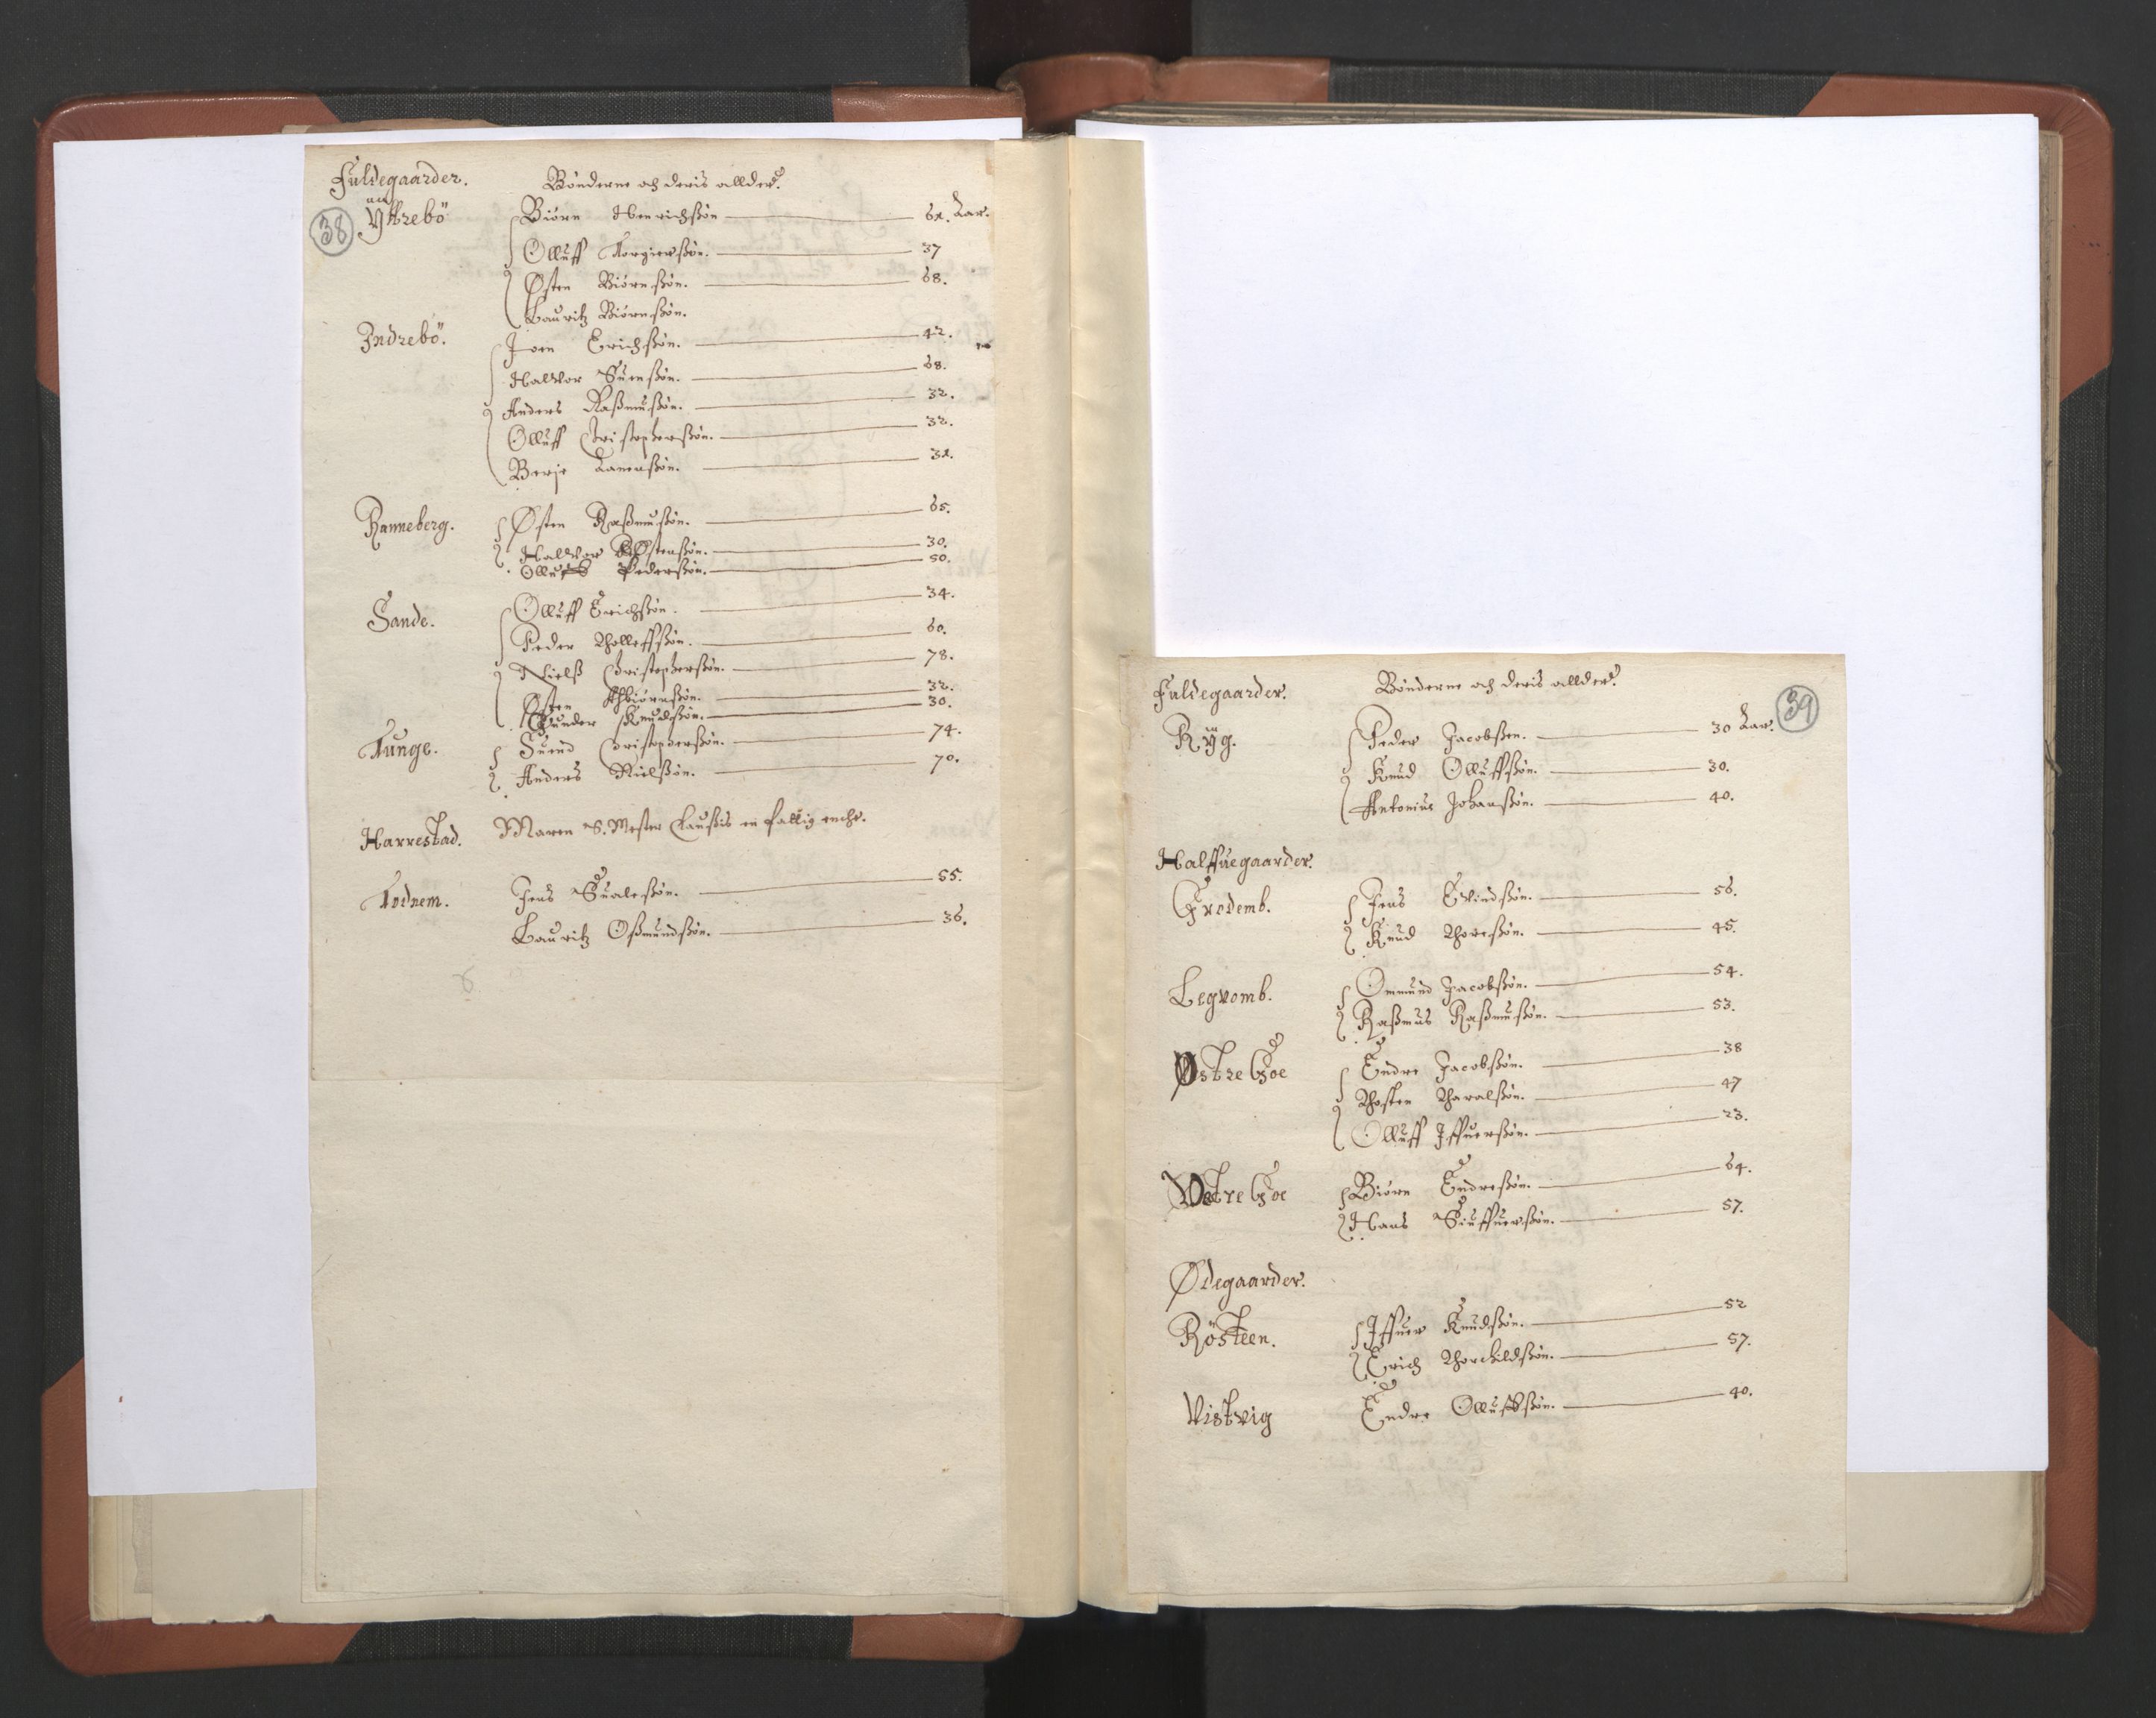 Fuldegaarder. Bönderne och deris allder.
38 Yttrebö Biörn Henrichßön 61. Aar.
Olluff Torgierßön. 37
Østen Biörnßön. 68.
Lauritz Biörnßön.
Indrebö. Joen Erichßön. 42.
Haldvor Suenßön. 68.
Anders Raßmußön. 32.
Olluff Christopherßön. 32.
Berje 31.
Ranneberg. Østen Raßmußön. 65.
Haldvor Østenßön. 30.
Olluff Pederßön. 50.
Sande. Olluff Erichßön. 34.
Peder Tholleffßön. 60.
Nielß Christopherßön. 78.
Østen Thbiörnßön. 32.
Gunder Knudßön. 30.
Tunge. Suend Christopherßön. 74.
Anders Nielßön. 70.
Harrestad. Maren S. Mester Claußis en fattig enche.
Todnem. Jens Sualeßön. 55.
Lauritz Oßmundßön. 36.
Fuldegaarder. Bönderne och deris allder.
39
Ryg. Peder Jacobßen. 30 Aar.
Knud Olluffßön. 30.
Antonius Johanßön. 40.
Halffuegaarder.
Grodemb. Jens Eluindßön. 56.
Knud Thoreßön. 45.
Legvomb. Ommund Jacobßön. 54.
Raßmus Raßmußön. 53.
Østre Goe Endre Jacobßön. 38
Thosten Tharalßön. 47
Olluff Iffuerßön. 23.
Vestre Goe Biörn Endreßön. 64.
Hans Siuffuerßön. 57.
Ødegaarder.
Rösteen. Iffuer Knudßön. 52
Erich Thorkildßön. 57.
Vistvig Endre Olluffßön. 40.